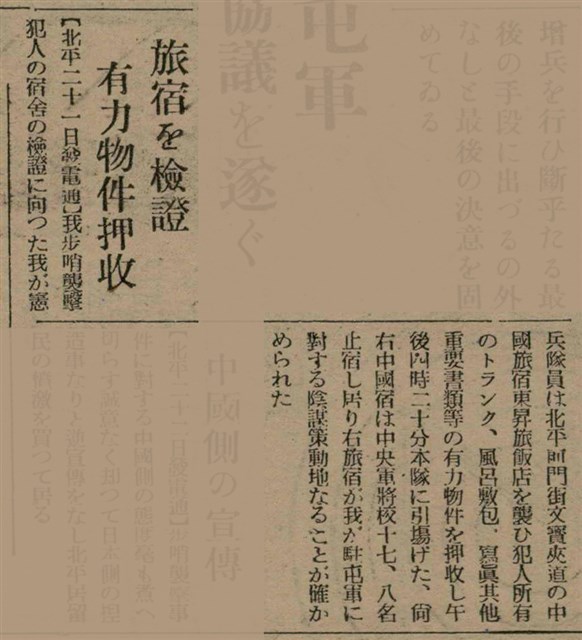 旅宿を檢證
有力物件押收
【北平二十一日發電通】我步哨襲擊
犯人の宿舍の檢證に向つた我が憲
兵隊員は北平前門街文寶夾道の中
國旅宿東昇旅飯店を襲ひ犯人所有
のトランク、風呂敷包、寫眞其他
重要書類等の有力物件を押收し午
後四時二十分本隊に引揚げた、尙
右中國宿は中央軍將校十七、八名
止宿し居り右旅宿が我が駐屯軍に
對する陰謀策動地なることが確か
められた
屯軍
協議を遂ぐ
增兵を行ひ斷乎たる最
後の手段に出づるの外
なしと最後の決意を固
めてゐる
中國側の宣傳